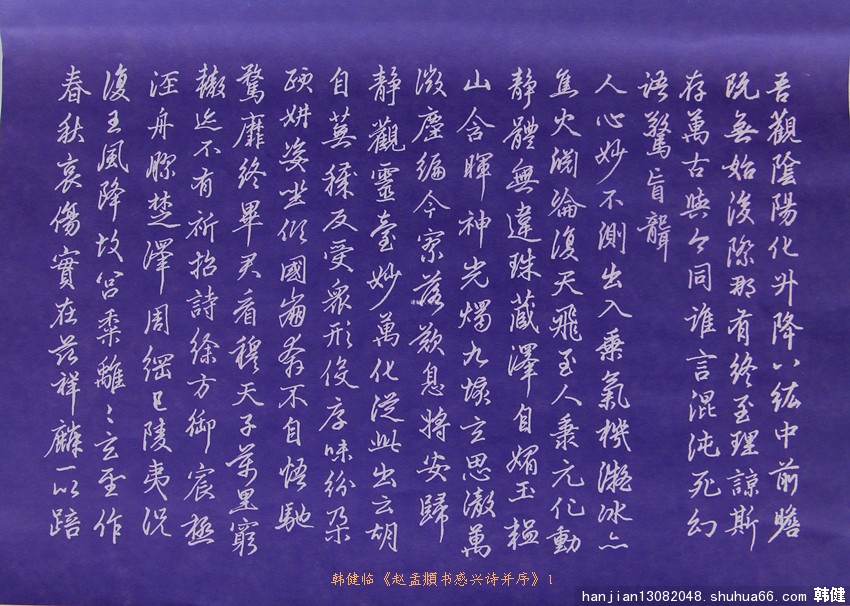 吾觀陰陽化升降八紘中前瞻
既無始後際那有終至理諒斯
存萬古與今同誰言混沌死幻
語驚盲聾
人心妙不測出入乘氣機凝冰亦
焦火淵淪復天飛至人秉元化動
静體無違珠藏澤自媚玉韞
山含暉神光燭九垓玄思澈萬
微塵編今寥落歎息將安歸
静觀靈臺妙萬化從此出云胡
自蕪穢反受衆形役厚味紛朵
頤妍姿坐傾國崩奔不自悟馳
騖靡終畢君看穆天子萬里窮
轍迹不有祈招詩徐方御宸極
涇舟膠楚澤周綱已陵夷況
復王風降故宮黍離〻玄聖作
春秋哀傷實在兹祥麟一以踣
韩健临《赵孟頫书感兴诗并序》1
hanjian13082048.shuhua66.com 韩健